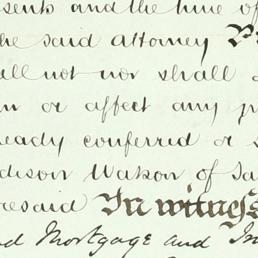 esents and the time of
he said Attorney Pr
all not nor shall
n or affect any p
eady conferred or s
dison Watson of Sa
resaid In witness
d Mortgage and In